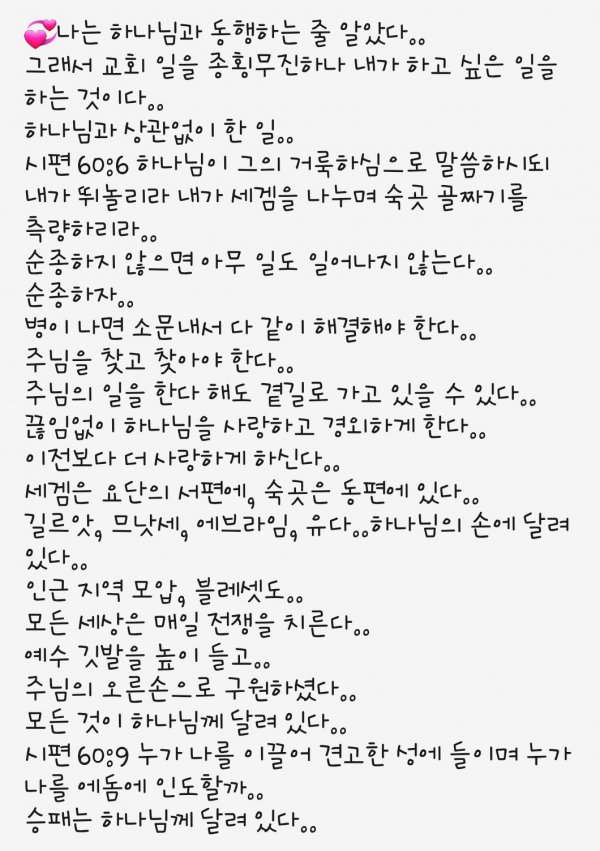 💞나는 하나님과 동행하는 줄 알았다..
그래서 교회 일을 종횡무진하나 내가 하고 싶은 일을
하는 것이다..
하나님과 상관없이 한 일..
시편 60:6 하나님이 그의 거룩하심으로 말씀하시되
내가 뛰놀리라 내가 세겜을 나누며 숙곳 골짜기를
측량하리라..
순종하지 않으면 아무 일도 일어나지 않는다..
순종하자..
병이 나면 소문내서 다 같이 해결해야 한다..
주님을 찾고 찾아야 한다..
주님의 일을 한다 해도 곁길로 가고 있을 수 있다..
끊임없이 하나님을 사랑하고 경외하게 한다..
이전보다 더 사랑하게 하신다..
세겜은 요단의 서편에, 숙곳은 동편에 있다..
길르앗, 므낫세, 에브라임, 유다..하나님의 손에 달려
있다..
인근 지역 모압, 블레셋도..
모든 세상은 매일 전쟁을 치른다..
예수 깃발을 높이 들고..
주님의 오른손으로 구원하셨다..
모든 것이 하나님께 달려 있다..
시편 60:9 누가 나를 이끌어 견고한 성에 들이며 누가
나를 에돔에 인도할까..
승패는 하나님께 달려 있다..